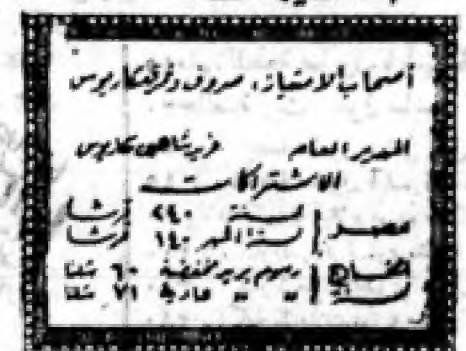 أصحاب الامتياز، صروف ونمر ومكاريوس
المدير العام فريد شاهين مكاريوس
الاشتراكات
مصر لسنة ٢٤٠ قرشا
لستة اشهر ١٤٠ قرشا
الخارج رسوم بريد مخفضة ٦٠ شلنا
لسنة " " عادية ٧١ شلنا